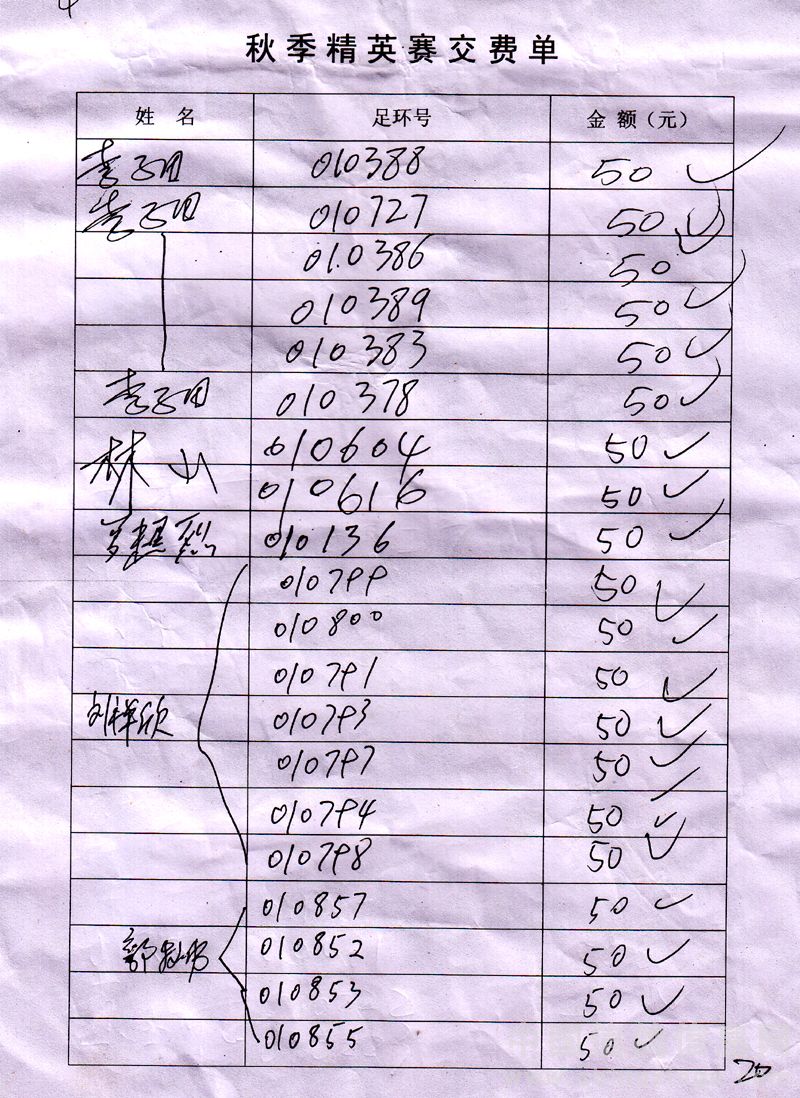 秋季精英赛交费单
姓 名 足环号 金 额（元）
李子田 010388 50
李子田 010727 50
010386 50
010389 50
010383 50
李子田 010378 50
林山 010604 50
010616 50
010136 50
010799 50
010800 50
010791 50
刘祥欣 010793 50
010797 50
010794 50
010798 50
010857 50
郭 010852 50
010853 50
010855 50
20